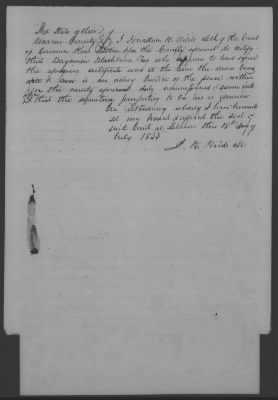 The State of Ohio }
Warren County } I Jonathan K Wilds Clerk of the Court
of Common Pleas within & for the County aforesaid do certify
that Benjamin Blackburn Esq who appears to have signed
the foregoing certificate was at the time the same bears
date & now is an acting Justice of the peace within
& for the county aforesaid duly commissioned & sworn and
that the signature purporting to be his is genuine
In testimony whereof I have hereunto
set my hand & affixed the seal of
said Court at Lebanon this 15th day of
July 1833
J. K. Wilds Clk